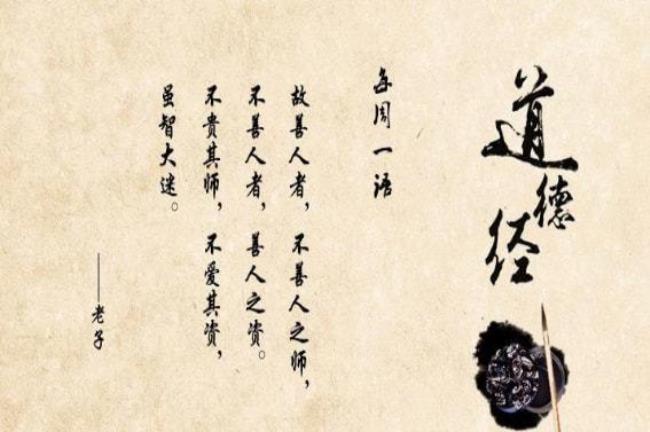 道德经
每周一语
故善人者，不善人之师，
不善人者，善人之资。
不贵其师，不爱其资，
虽智大迷。
——老子